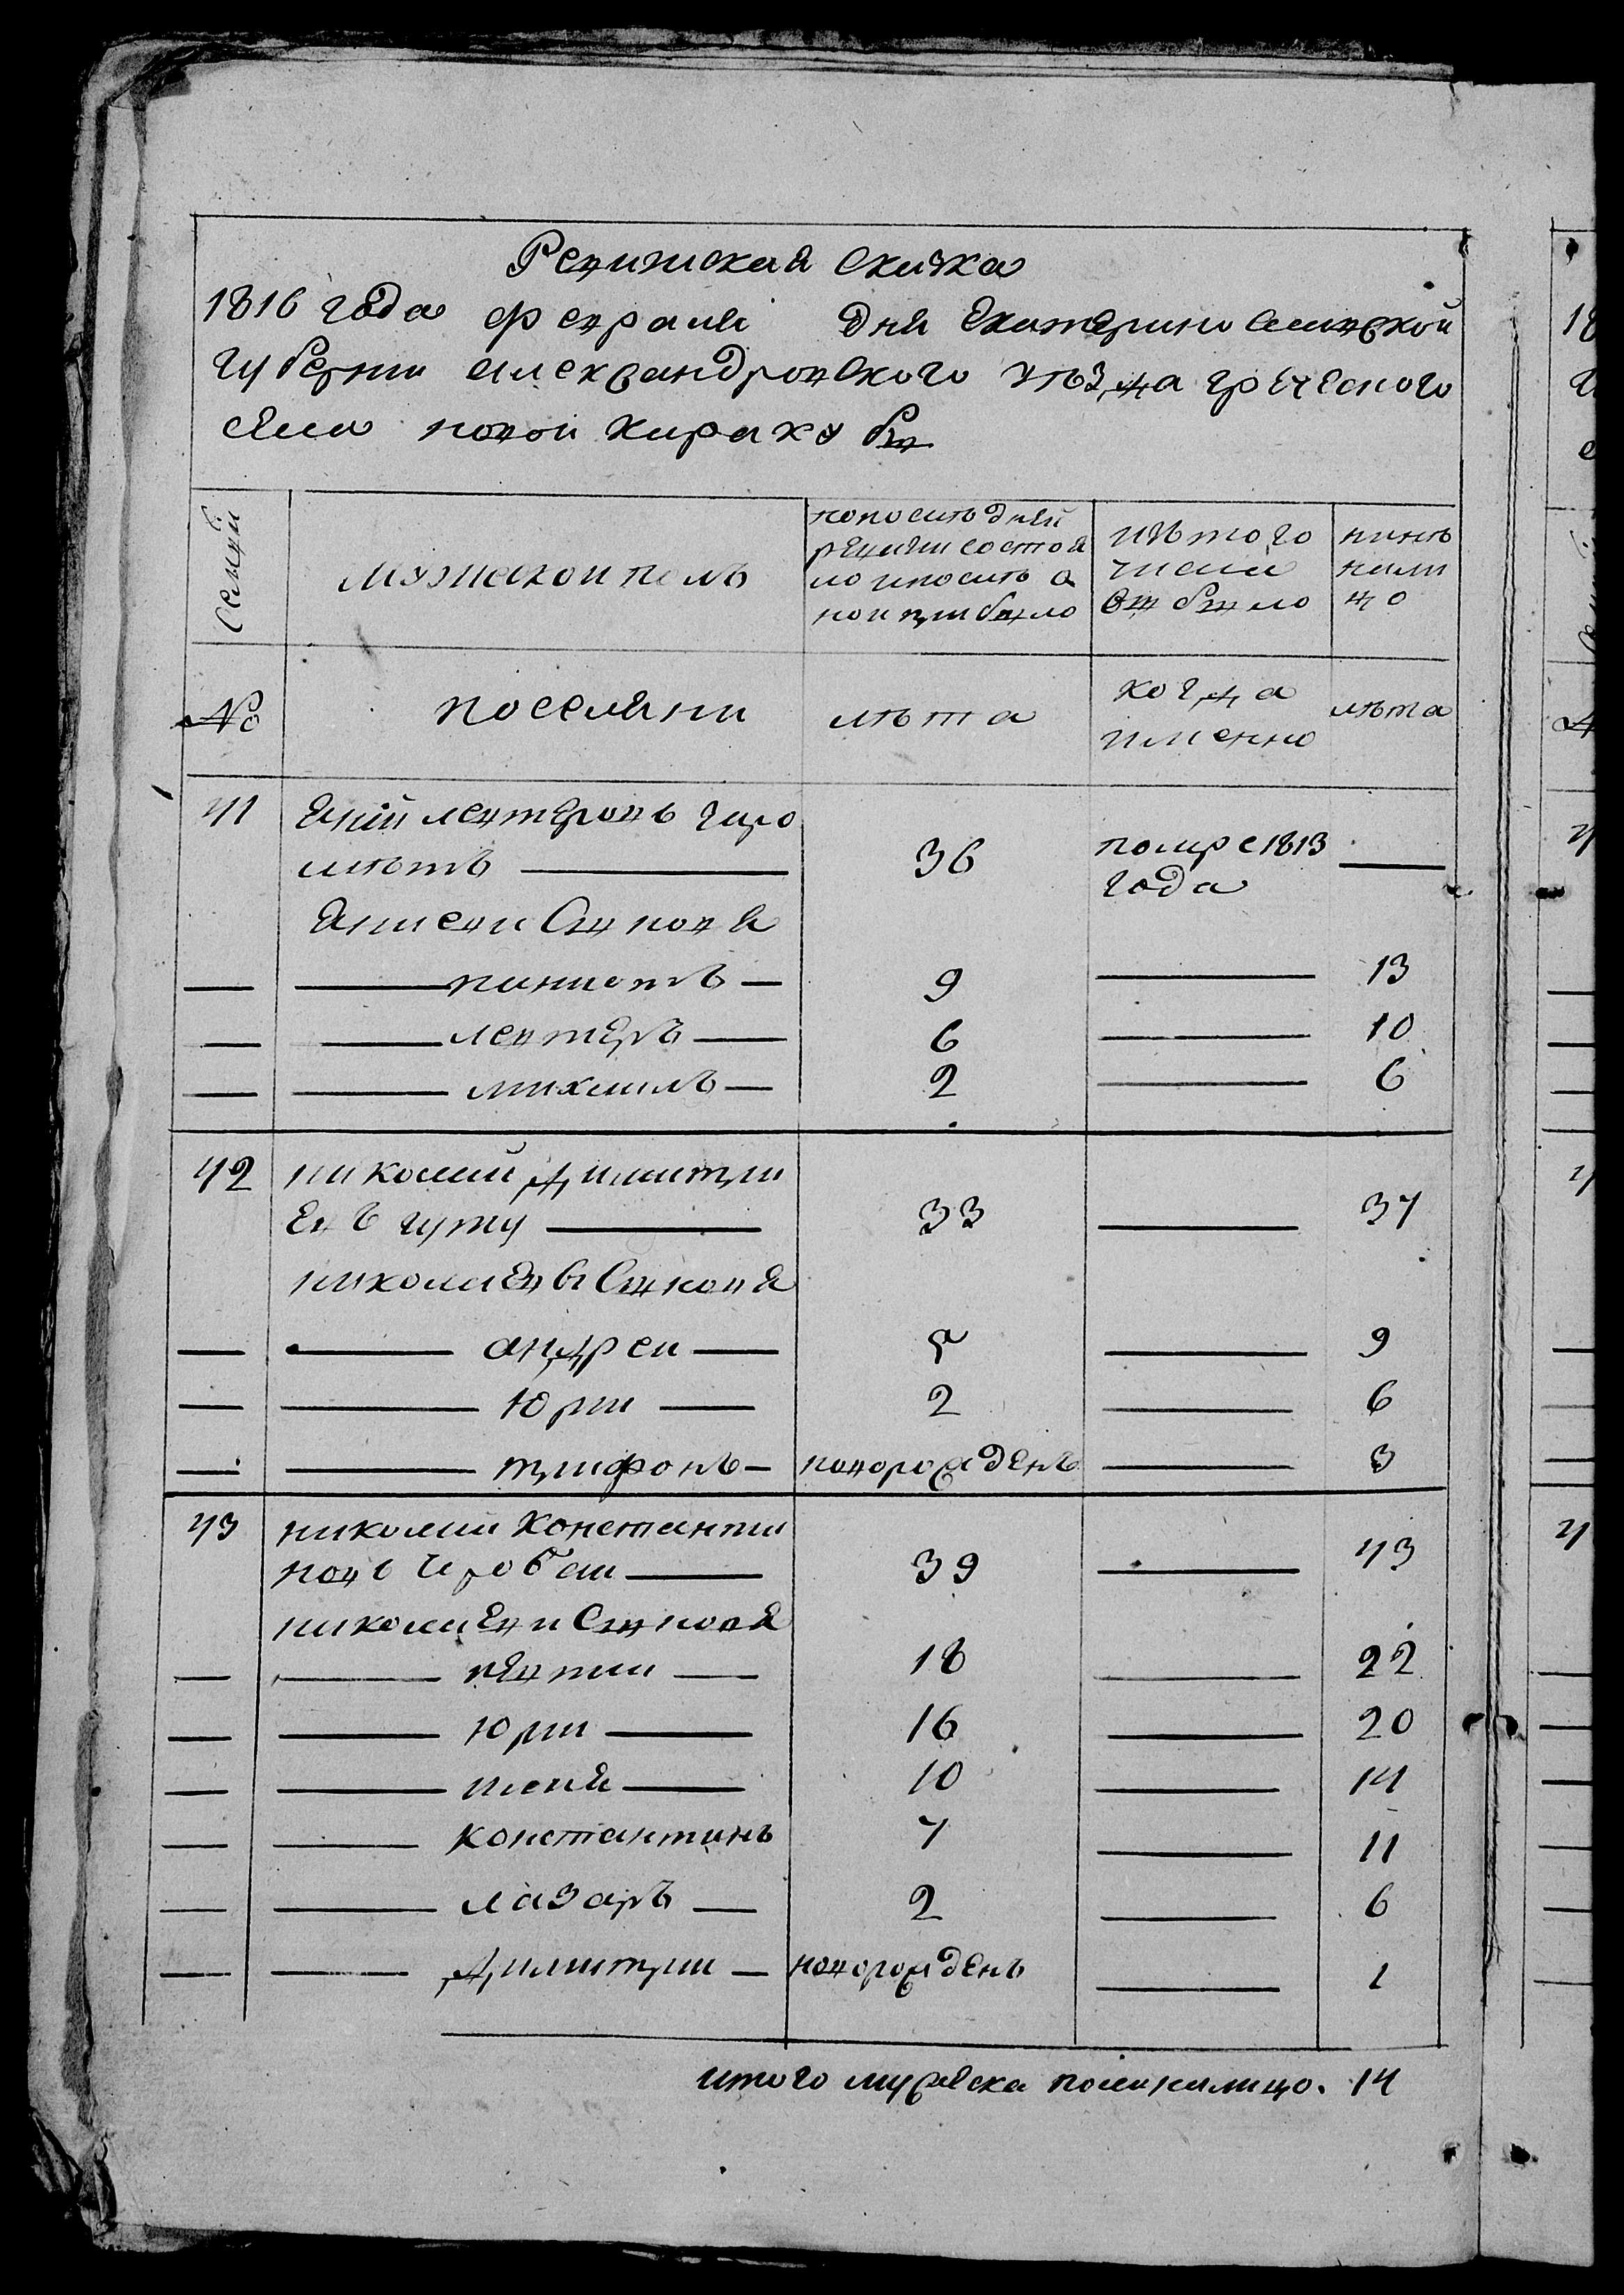 Ревижская Скаска
1816 года февраля дня Екатеринославской
губерни александровского уѣзда греческого
села новой каракубы
Семьи
мужеской полъ
попоследней
ревизии состоя
ло ипослѣ о
ной прибыло
изъ того
числа
выбыло
нынѣ
нали
цо
№
поселяни
лѣта
когда
именно
лѣта
41
36
помре 1813
года
Сынової
— панаіотъ —
9
13
— левтеръ —
6
10
— михаилъ —
2
6
42
николай димитри
евъ чути
33
37
николаевы Сыновя
— андреи —
5
9
— юрии —
2
6
— трифонъ —
новорожденъ
3
43
николаи Константи
новъ
39
43
николаеви Сыновя
18
22
— юрии —
16
20
— илия —
10
14
— Константинъ
7
11
— лазарь —
2
6
— димитрии —
новорожденъ
1
итого мужеска пола налицо. 14